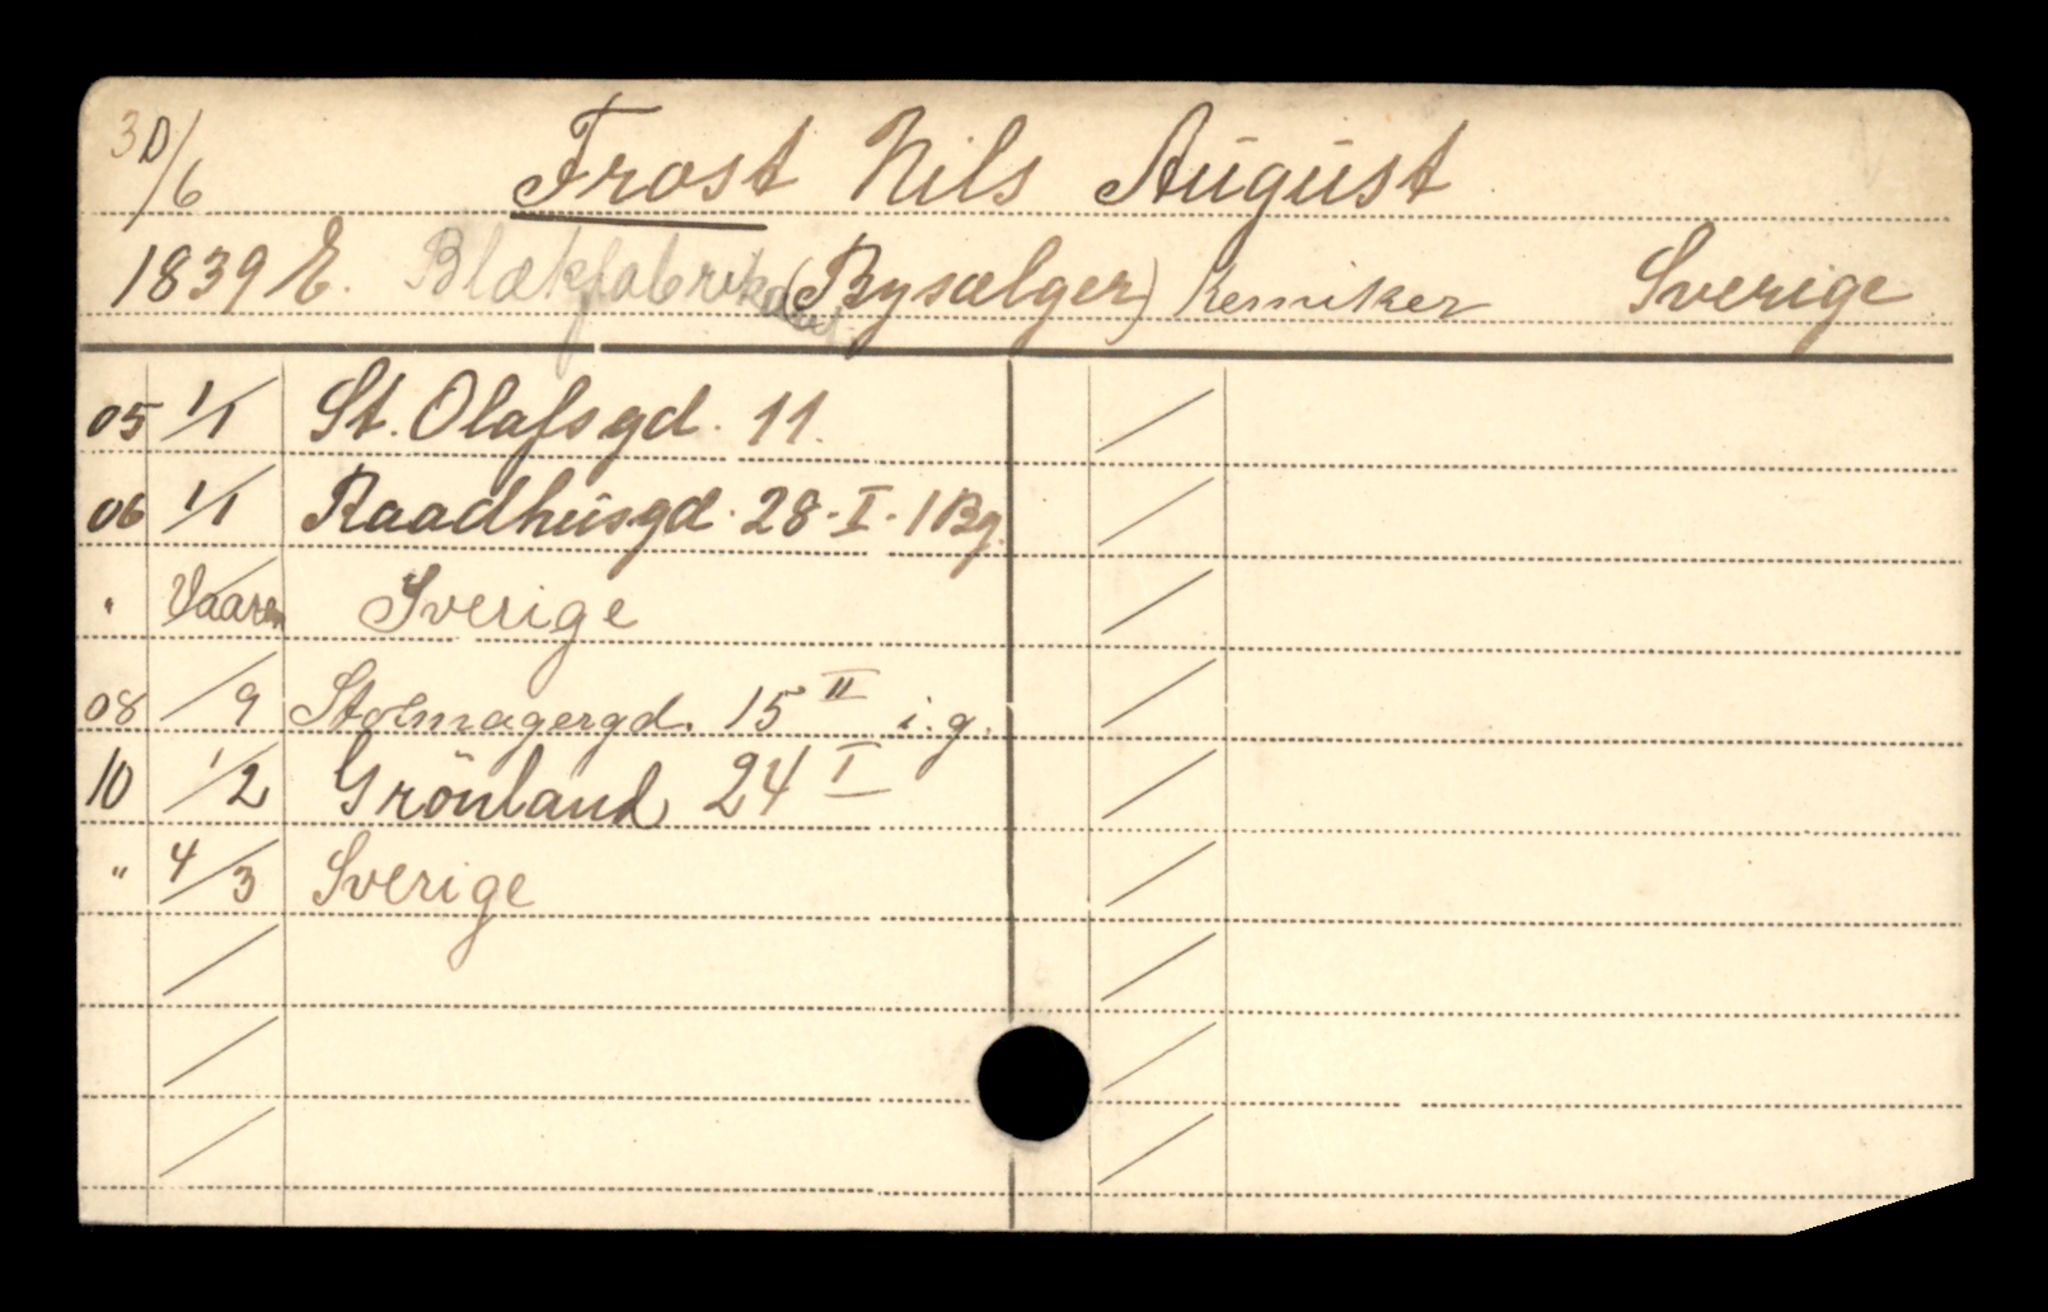 30/6 Frost Nils August
1839 E. Blækfabrikant (Bysælger) Kemiker Sverige
05 1/1 St. Olafsgd. 11.
06 1/1 Raadhusgd. 28. I. 1 Bg.
" Vaaren Sverige
08 /9 Stolmagergd. 15 II i. g.
10 1/2 Grönland 24 I
" 4/3 Sverige